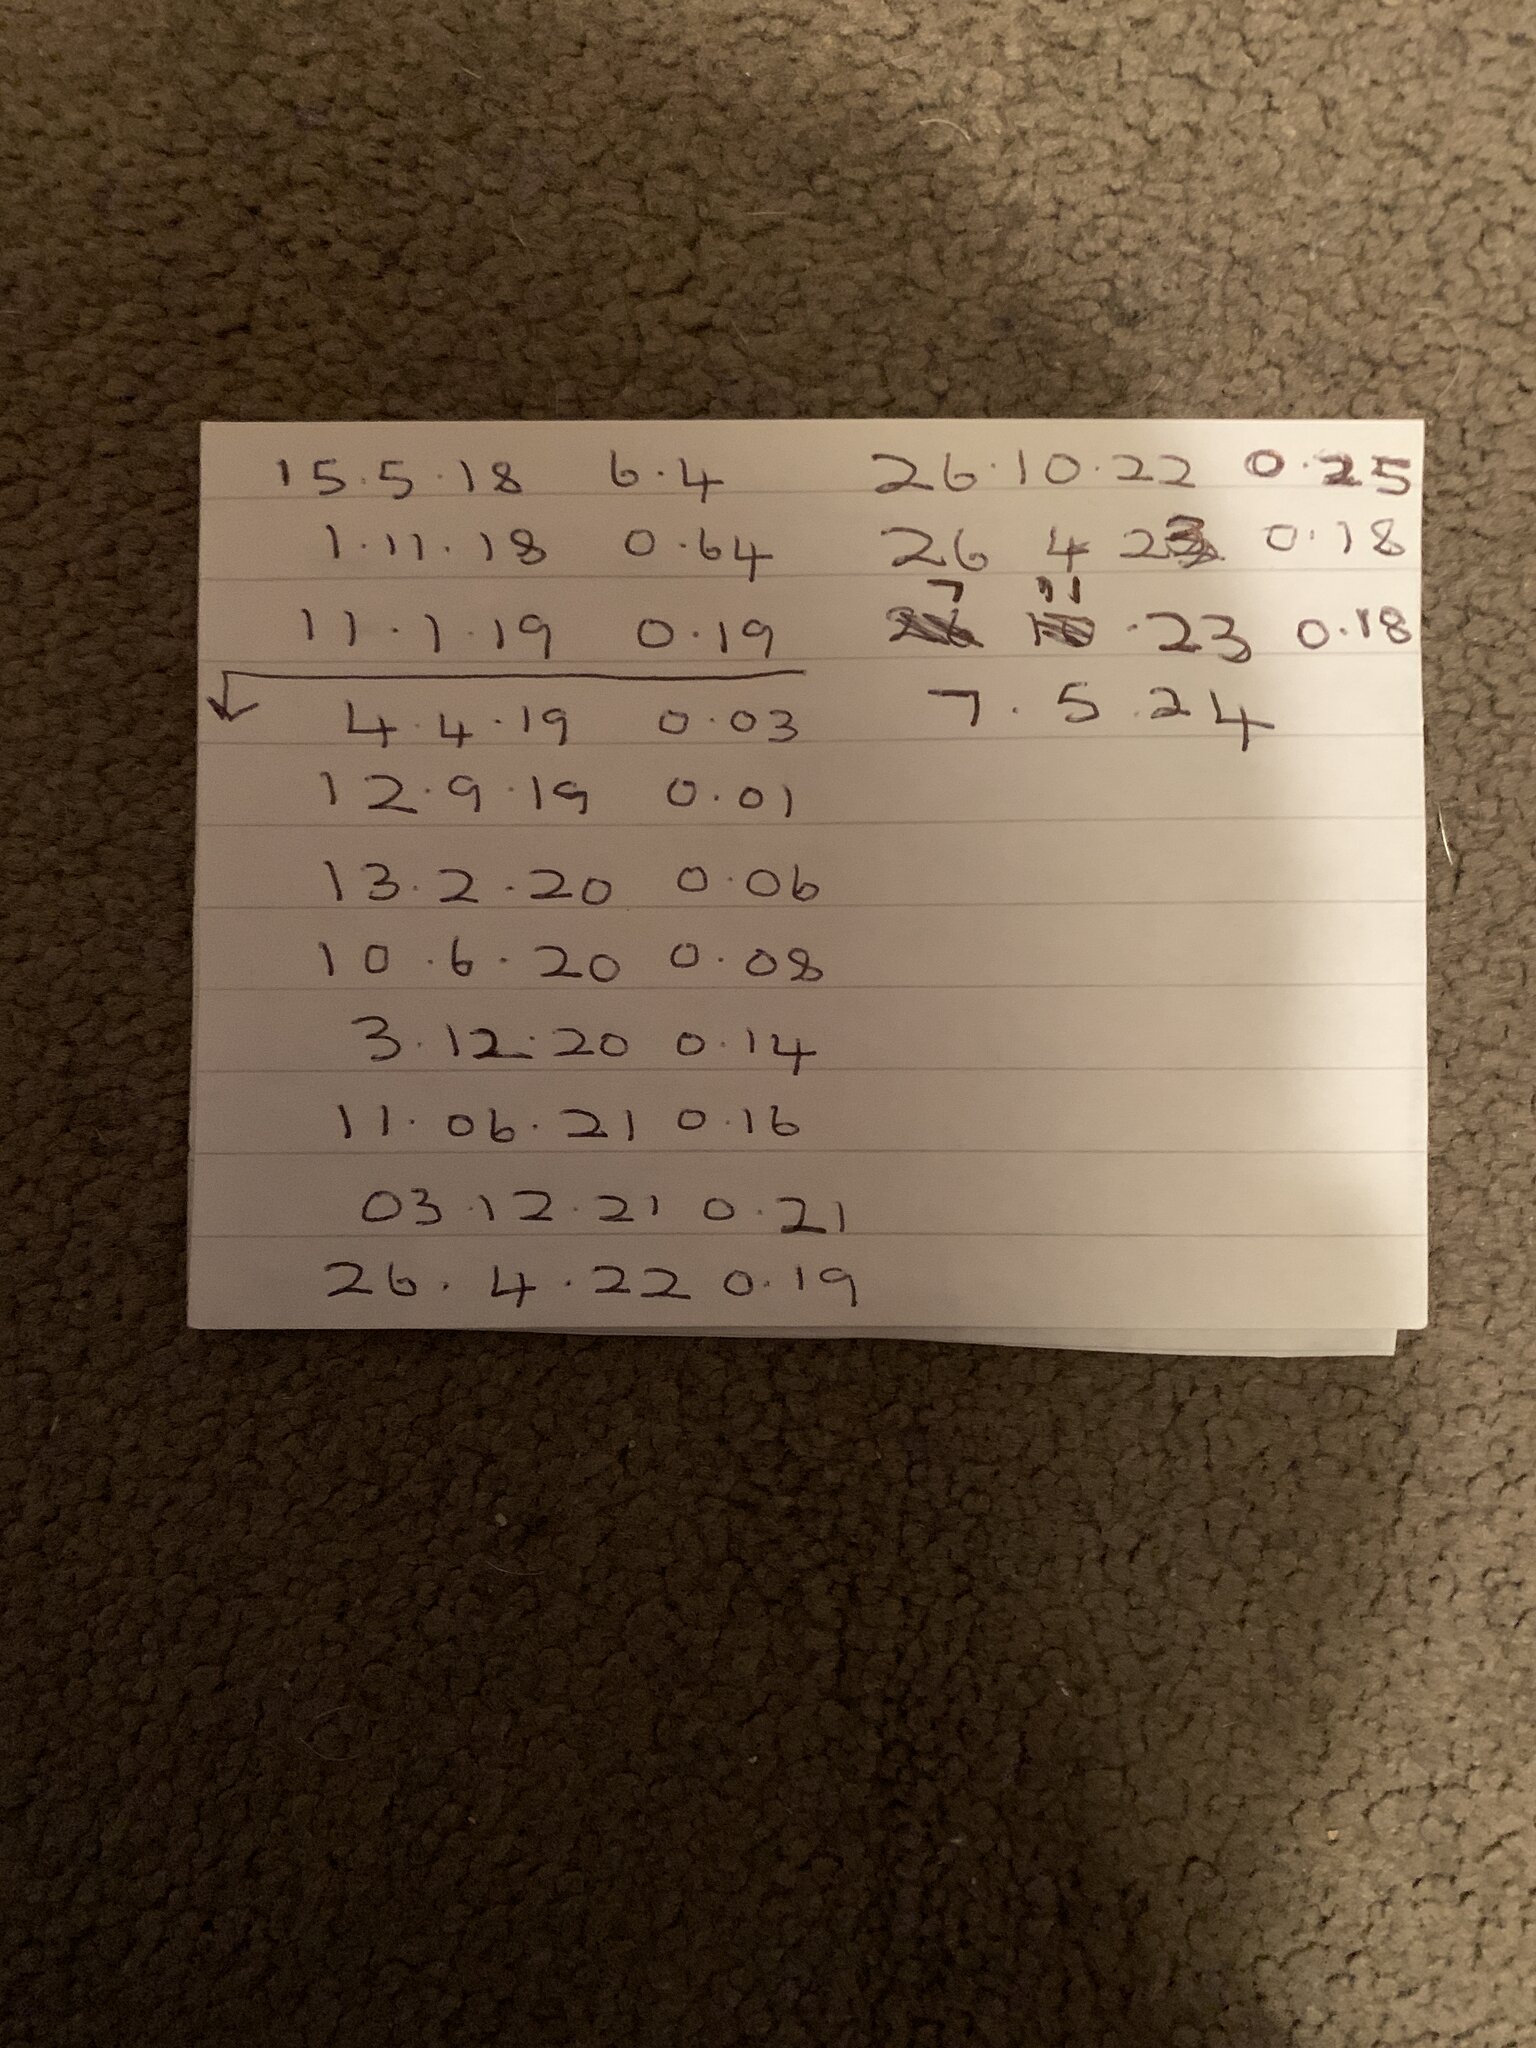 15.5.18 6.4
1.11.18 0.64
11.1.19 0.19
4.4.19 0.03
12.9.19 0.01
13.2.20 0.06
10.6.20 0.08
3.12.20 0.14
11.06.21 0.16
03.12.21 0.21
26.4.22 0.19
26.10.22 0.25
26 4 23 0.18
7 11 .23 0.18
7.5.24